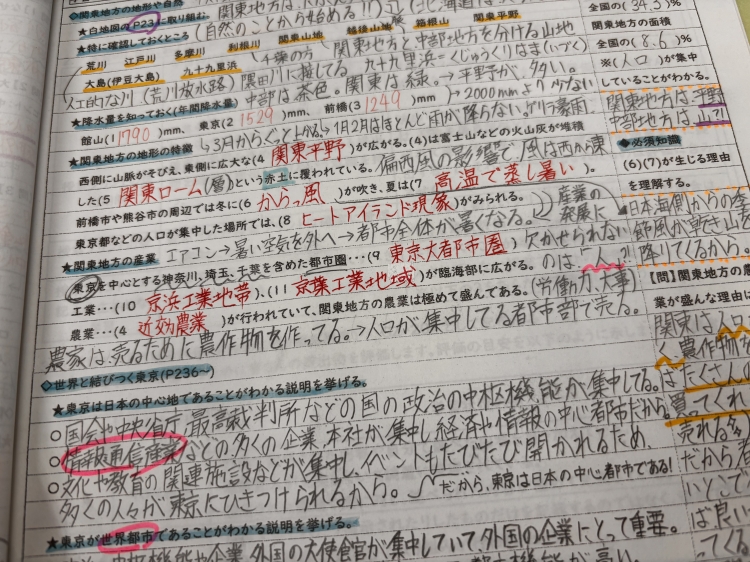 ◇関東地方の地形や自然
★白地図のP23に取り組む。
(自然のことから始める!!)
★特に確認しておくところ
荒川 江戸川 多摩川 利根川 関東山地 越後山脈 箱根山 関東平野
関東地方と中部地方を分ける山地
大島(伊豆大島) 九十九里浜
千葉の方
九十九里浜=くじゅうくりはま
人工的な川(荒川放水路) 隅田川に接してる
関東は緑。→平野が多い。
中部は茶色。
★降水量を知っておく(年間降水量)
→2000mmより少ない
館山(1790)mm、東京(21529)mm、前橋(31249)mm
→3月からぐっと上がる→1月2月はほとんど雨が降らない。ゲリラ豪雨
★関東地方の地形の特徴
西側に山脈がそびえ、東側に広大な(4 関東平野)が広がる。(4)は富士山などの火山灰が堆積
した(5 関東ローム(層))という赤土に覆われている。
偏西風の影響で風は西から東
前橋市や熊谷市の周辺では冬に(6 からっ風)が吹き、夏は(7 高温で蒸し暑い)
東京都などの人口が集中した場所では、(8 ヒートアイランド現象)がみられる。
エアコン→暑い空気を外へ→都市全体が暑くなる。
産業の発展に欠かせられないのは、人!!
(労働力大事)
★関東地方の産業
東京を中心とする神奈川、埼玉、千葉を含めた都市圏…(9 東京大都市圏)
工業…(10 京浜工業地帯)、(11 京葉工業地域)が臨海部に広がる。
農業…(4 近効農業)が行われていて、関東地方の農業は極めて盛んである。
農家は、売るために農作物を作ってる。→人口が集中してる都市部で売る。
◇世界と結びつく東京(P236〜)
★東京は日本の中心地であることがわかる説明を挙げる。
○国会や中央省庁、最高裁判所などの国の政治の中枢機能が集中してる。
○情報通信産業などの多くの企業、本社が集中し、経済や情報の中心都市だから。
○文化や教育の関連施設などが集中し、イベントもたびたび開かれるため、
多くの人々が東京にひきつけられるから。
だから、東京は日本の中心都市である!
★東京が世界都市であることがわかる説明を挙げる。
中枢機能や企業、外国の大使食官が集中していて外国の企業にとって重要。
全国の(34.3)%
関東地方の面積
全国の(8.6)%
※(人口)が集中
していることがわかる。
関東地方は、平野
中部地方は、山?!
◇必須知識
(6)(7)が生じる理由
を理解する。
日本海側からの季
節風が乾き山を
降りてくるから。
【問】関東地方の農
業が盛んな理由に
関東は人口
く、農作物が
はたくさんの
買ってくれ
売れる
だから